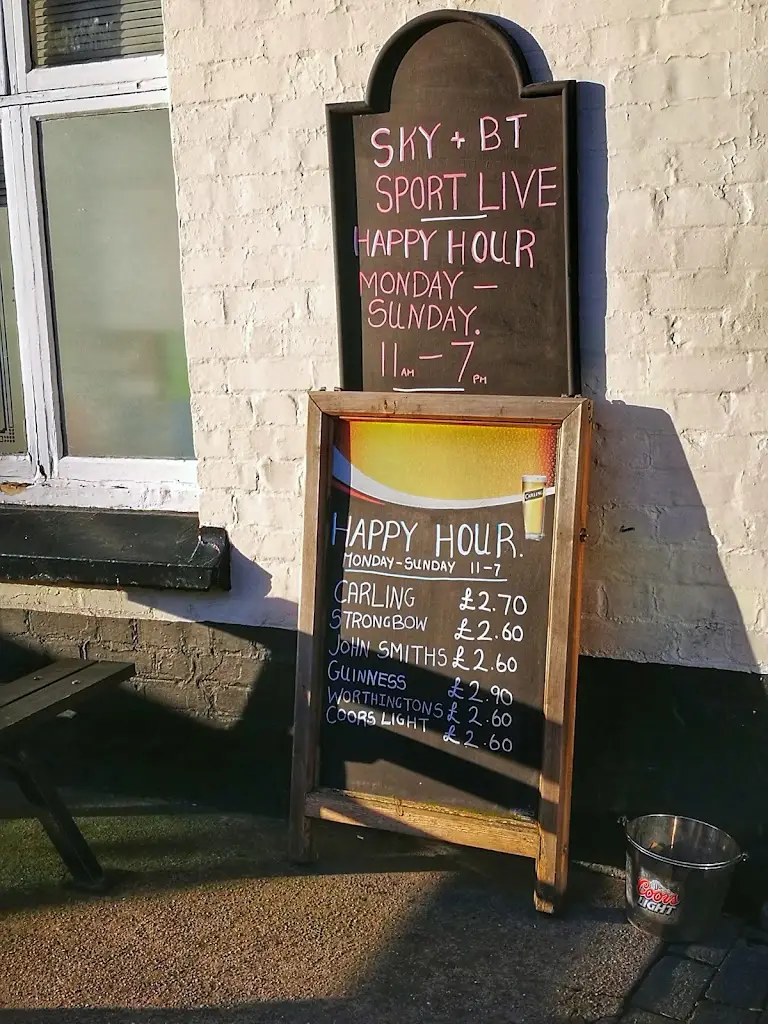 SKY + BT
SPORT LIVE
HAPPY HOUR
MONDAY —
SUNDAY.
11AM — 7PM
CARLING
HAPPY HOUR.
MONDAY-SUNDAY 11-7
CARLING £2.70
STRONGBOW £2.60
JOHN SMITHS £2.60
GUINNESS £2.90
WORTHINGTONS £2.60
COORS LIGHT £2.60
Coors
LIGHT